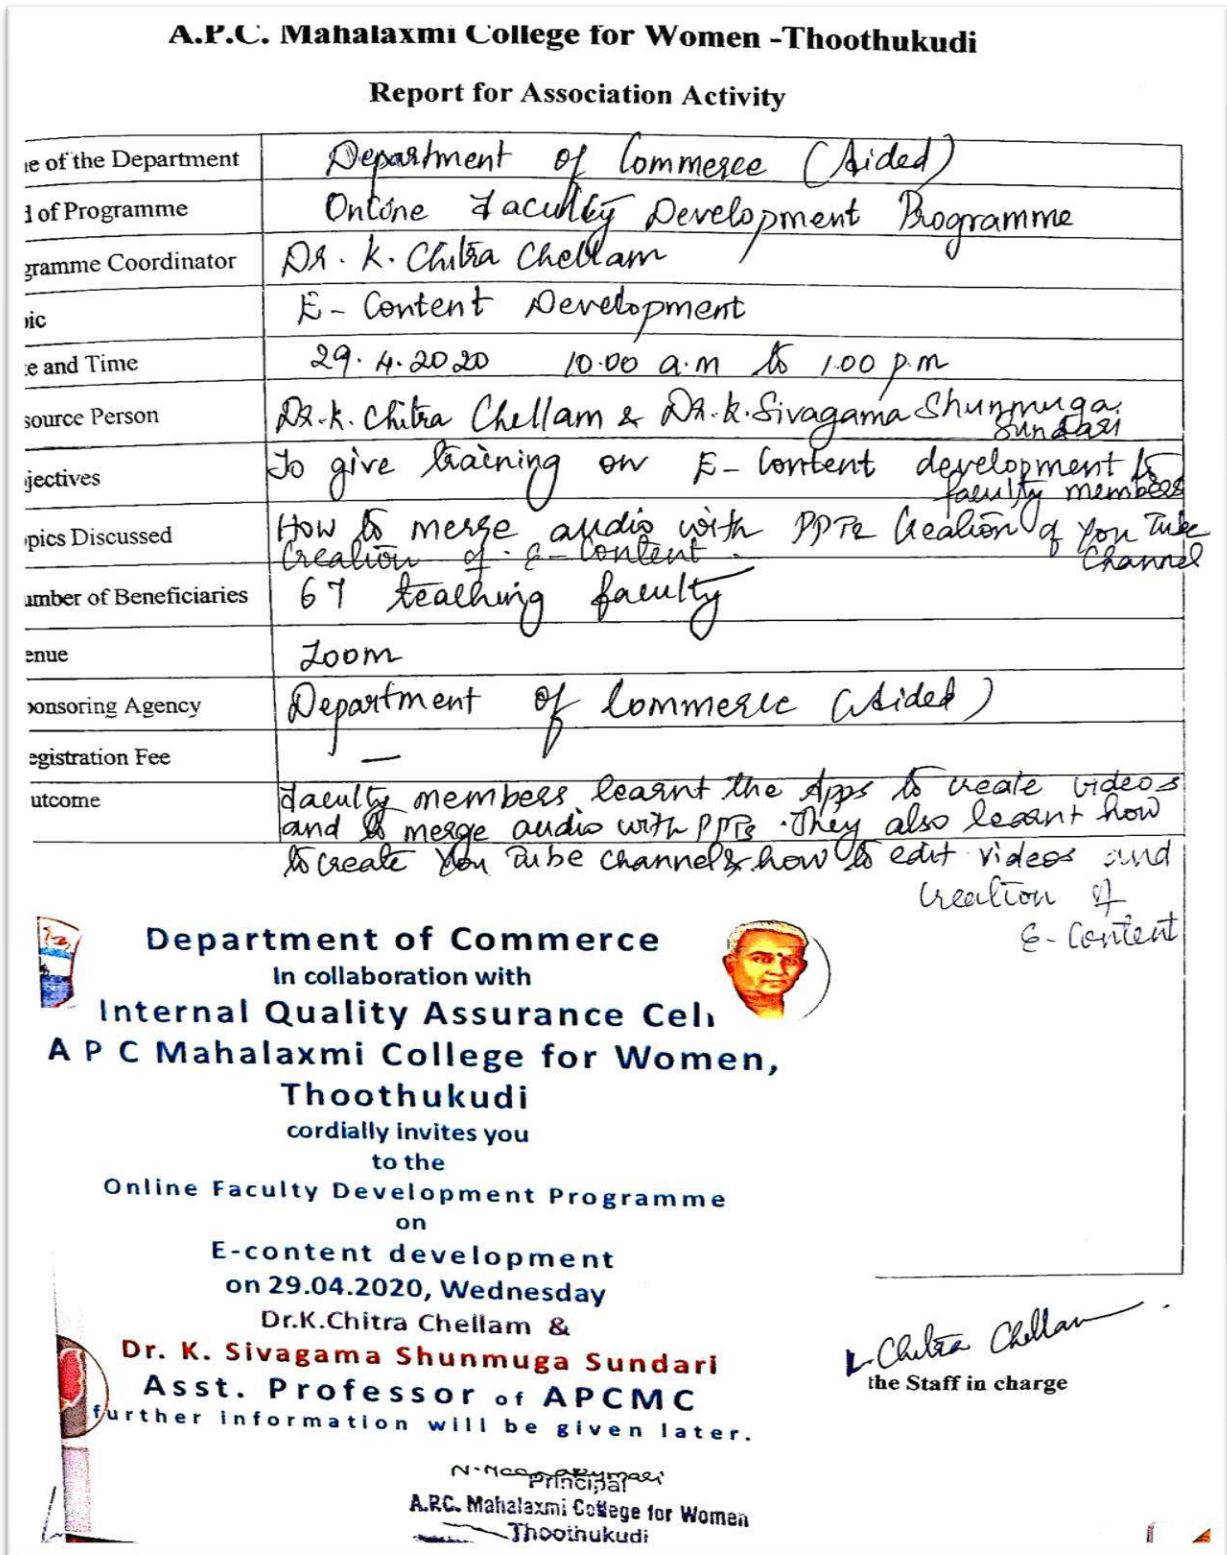 A.P.C. Mahalaxmi College for Women -Thoothukudi
Report for Association Activity
e of the Department Department of Commerce (Aided)
of Programme Online Faculty Development Programme
gramme Coordinator Dr. K. Chitra Chellam
ic E- Content Development
e and Time 29.4.2020 10.00 a.m to 1.00 p.m
source Person Dr.K. Chitra Chellam & Dr.K.Sivagama Shunmuga
Sundari
jectives To give training on E- Content development to
faculty members
pics Discussed How to merge audio with PPT& Creation of You Tube
Creation of E-Content. Channel
umber of Beneficiaries 67 teaching faculty
enue Zoom
onsoring Agency Department of Commerce (Aided)
egistration Fee —
utcome Faculty members learnt the Apps to create videos
and to merge audio with PPTs. They also learnt how
to create You Tube channel & how to edit videos and
Creation of
E-Content
Department of Commerce
In collaboration with
Internal Quality Assurance Cell
A P C Mahalaxmi College for Women,
Thoothukudi
cordially invites you
to the
Online Faculty Development Programme
on
E-content development
on 29.04.2020, Wednesday
Dr.K.Chitra Chellam &
Dr. K. Sivagama Shunmuga Sundari
Asst. Professor of APCMC
further information will be given later.
K. Chitra Chellam
the Staff in charge
Principal
A.P.C. Mahalaxmi College for Women
Thoothukudi